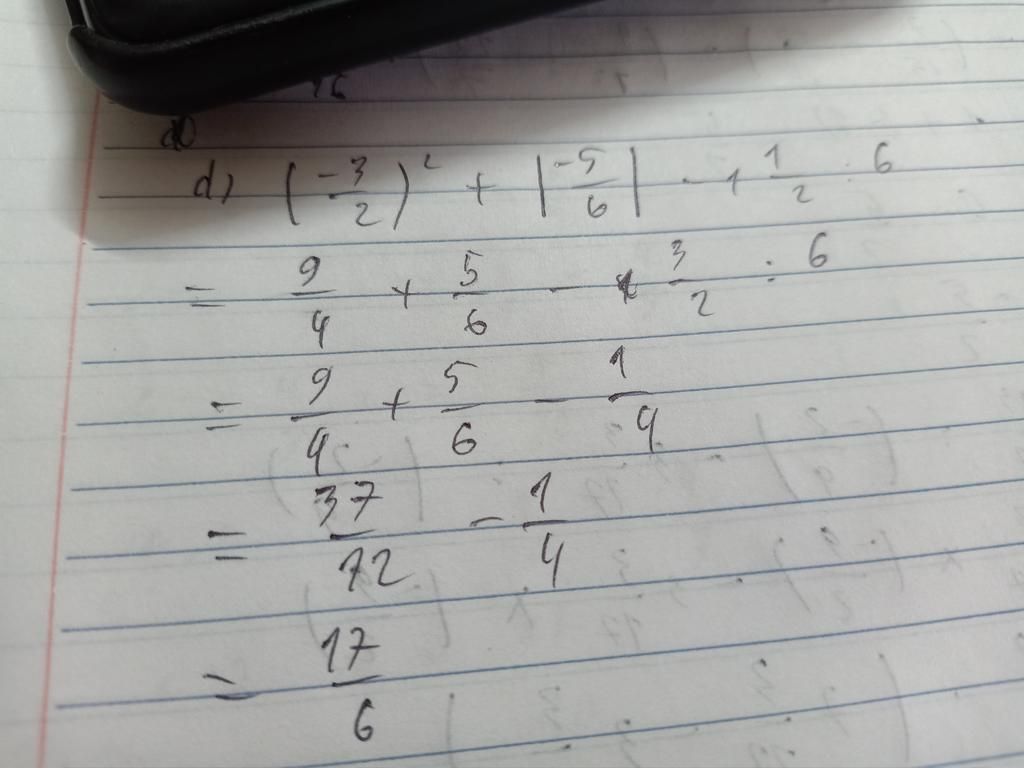 16
d) (-3/2)² + |-5/6| - 1 1/2 : 6
= 9/4 + 5/6 - 3/2 : 6
= 9/4 + 5/6 - 1/4
= 37/12 - 1/4
= 17/6